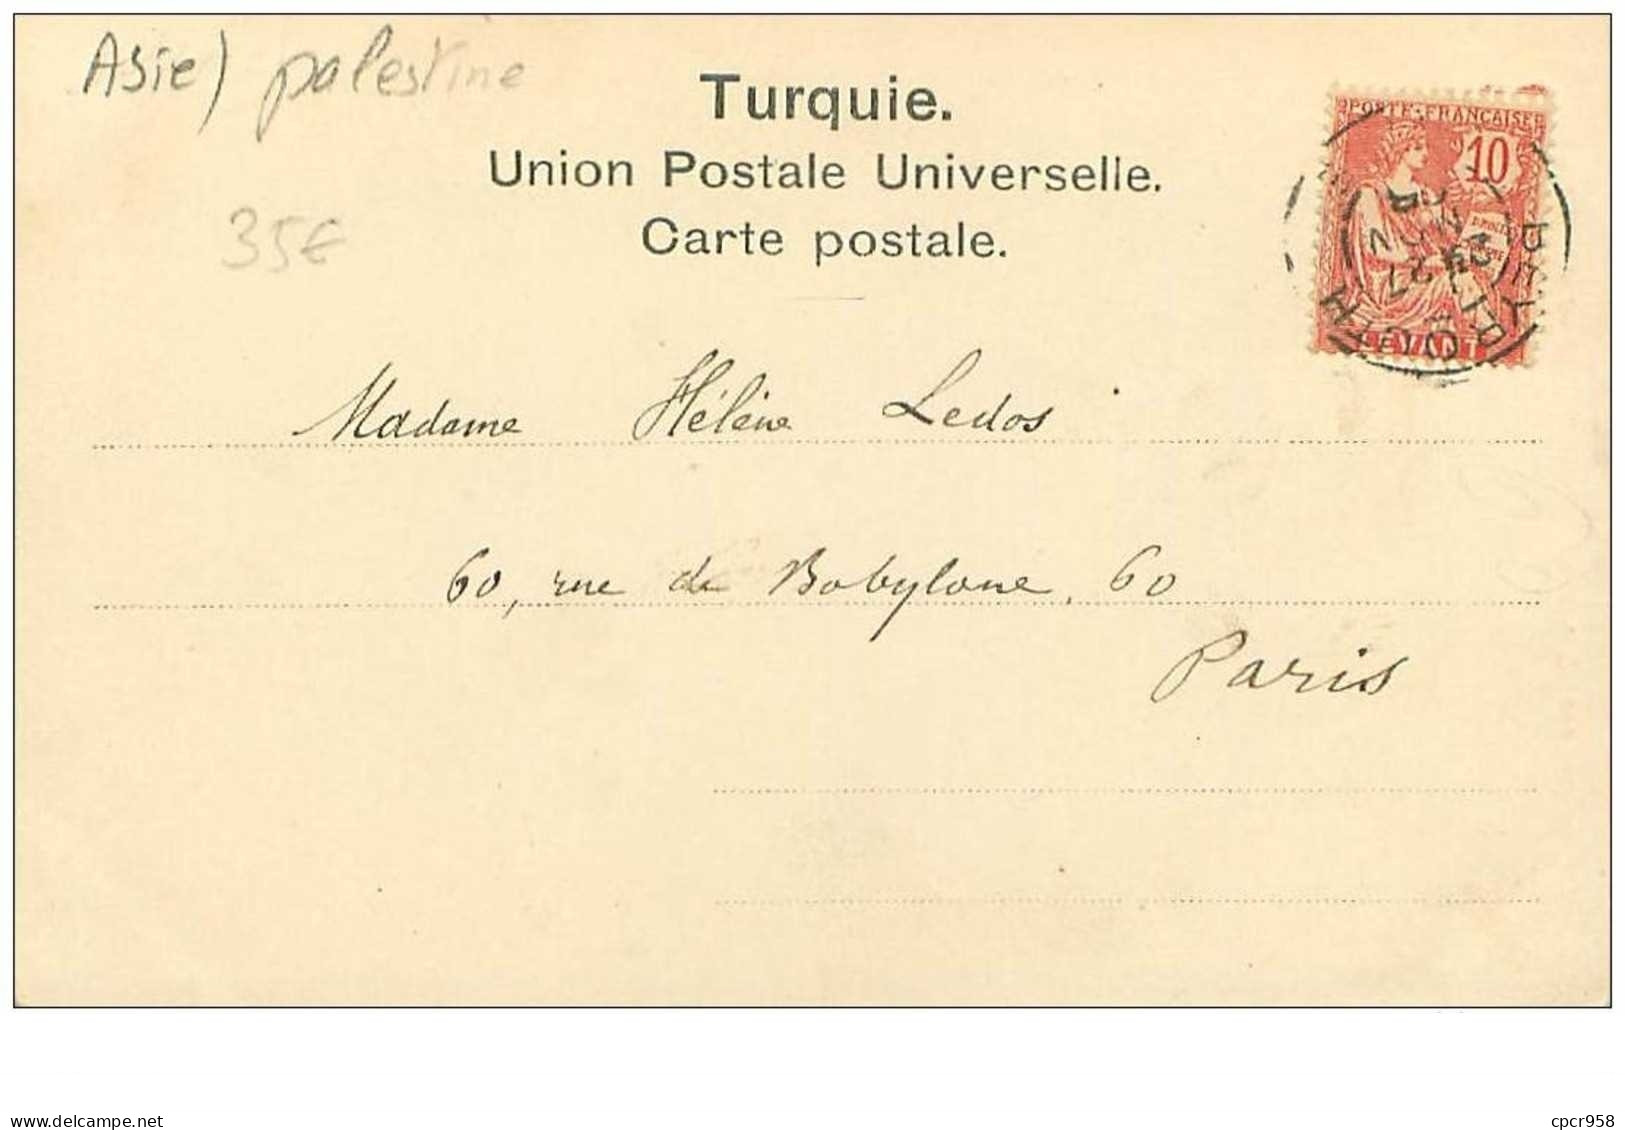 Asie) palestine
35€
Turquie.
Union Postale Universelle.
Carte postale.
POSTE FRANÇAISE
10
LEVANT
BEYROUTH
27
NOV
Madame Hélène Ledos
60, rue de Babylone, 60
Paris
delcampe.net
cpcr958